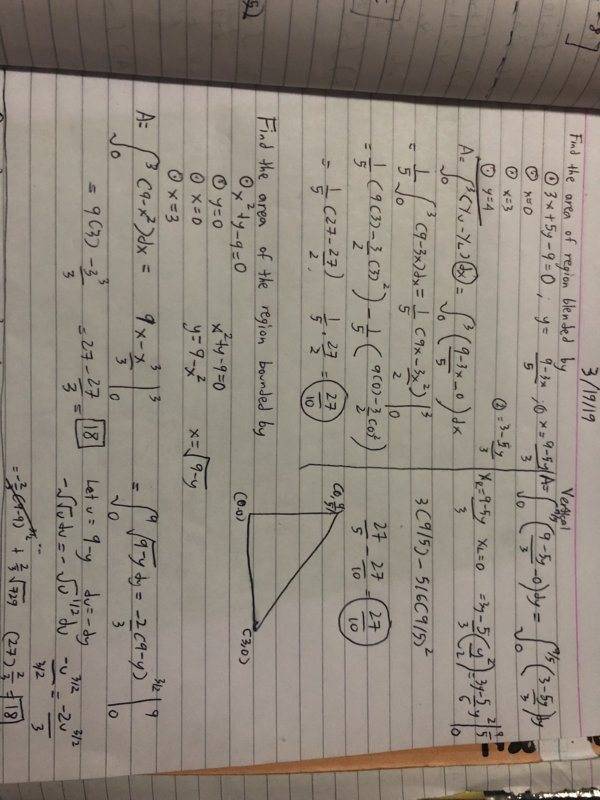 3/19/19
Find the area of region blended by
① 3x + 5y - 9 = 0 ; y = (9-3x)/5 ; x = (9-5y)/3
① x = 0
① x = 3
① y = 4
② = 3 - 5/3 y
A = ∫₀³ (Yu - YL) dx = ∫₀³ ((9-3x)/5 - 0) dx
= 1/5 ∫₀³ (9-3x)dx = 1/5 (9x - 3x²/2) |₀³
= 1/5 (9(3) - 3/2 (3)²) - 1/5 (9(0) - 3/2 (0)²)
= 1/5 (27 - 27/2) , 1/5 · 27/2 = 27/10
Vertical
A = ∫₀^(9/5) ((9-5y)/3 - 0) dy = ∫₀^(9/5) (3 - 5/3 y) dy
XR = (9-5y)/3 XL = 0 = 3y - 5/3 (y²/2) = 3y - 5/6 y² |₀^(9/5)
3(9/5) - 5/6 (9/5)²
27/5 - 27/10 = 27/10
(0, 9/5)
(0,0)
(3,0)
Find the area of the region bounded by
① x² + y - 9 = 0
① y = 0
① x = 0
① x = 3
x² + y - 9 = 0
y = 9 - x²
x = √(9-y)
A = ∫₀³ (9-x²)dx = 9x - x³/3 |₀³
= 9(3) - 3³/3 = 27 - 27/3 = 18
= ∫₀⁹ √(9-y) dy = -2/3 (9-y)^(3/2) |₀⁹
Let u = 9-y du = -dy
-√u du = -√u^(1/2) du
-u^(3/2) / (3/2) = -2u^(3/2) / 3
= -2/3 (9-9)^(3/2) + 2/3 √729 (27) 2/3 = 18